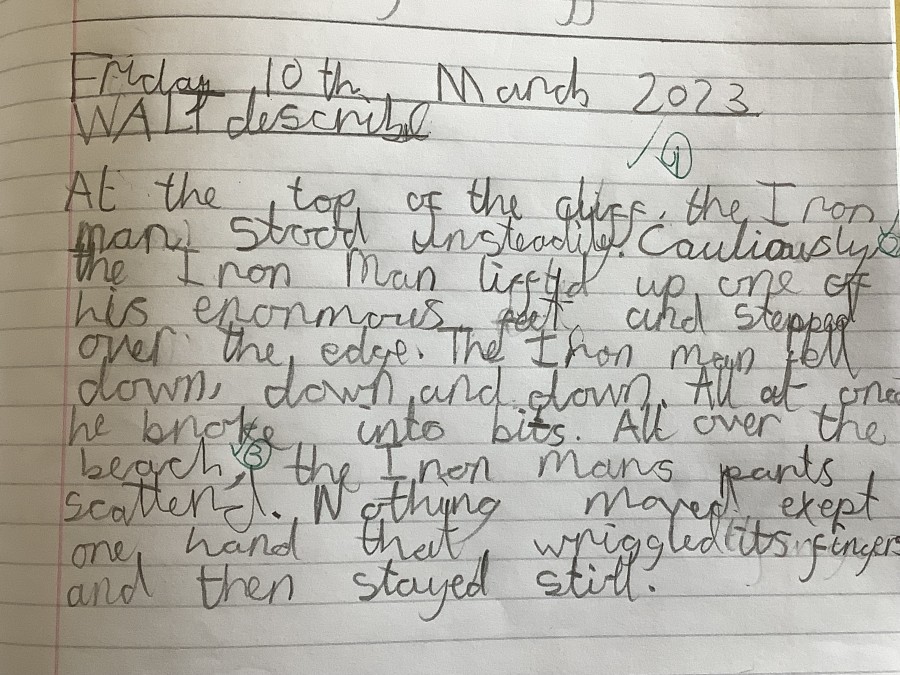 Friday 10th March 2023
WALT describe
①
At the top of the cliff, the Iron
man, stood unsteadily. Cautiously, ②
the Iron Man liffted up one off
his enormous feet and stepped
over the edge. The Iron man fell
down, down, and down. All at once
he broke into bits. All over the
beach, ③ the Iron mans parts
scatterd. Nothing moved exept
one hand that wriggled its fingers
and then stayed still.